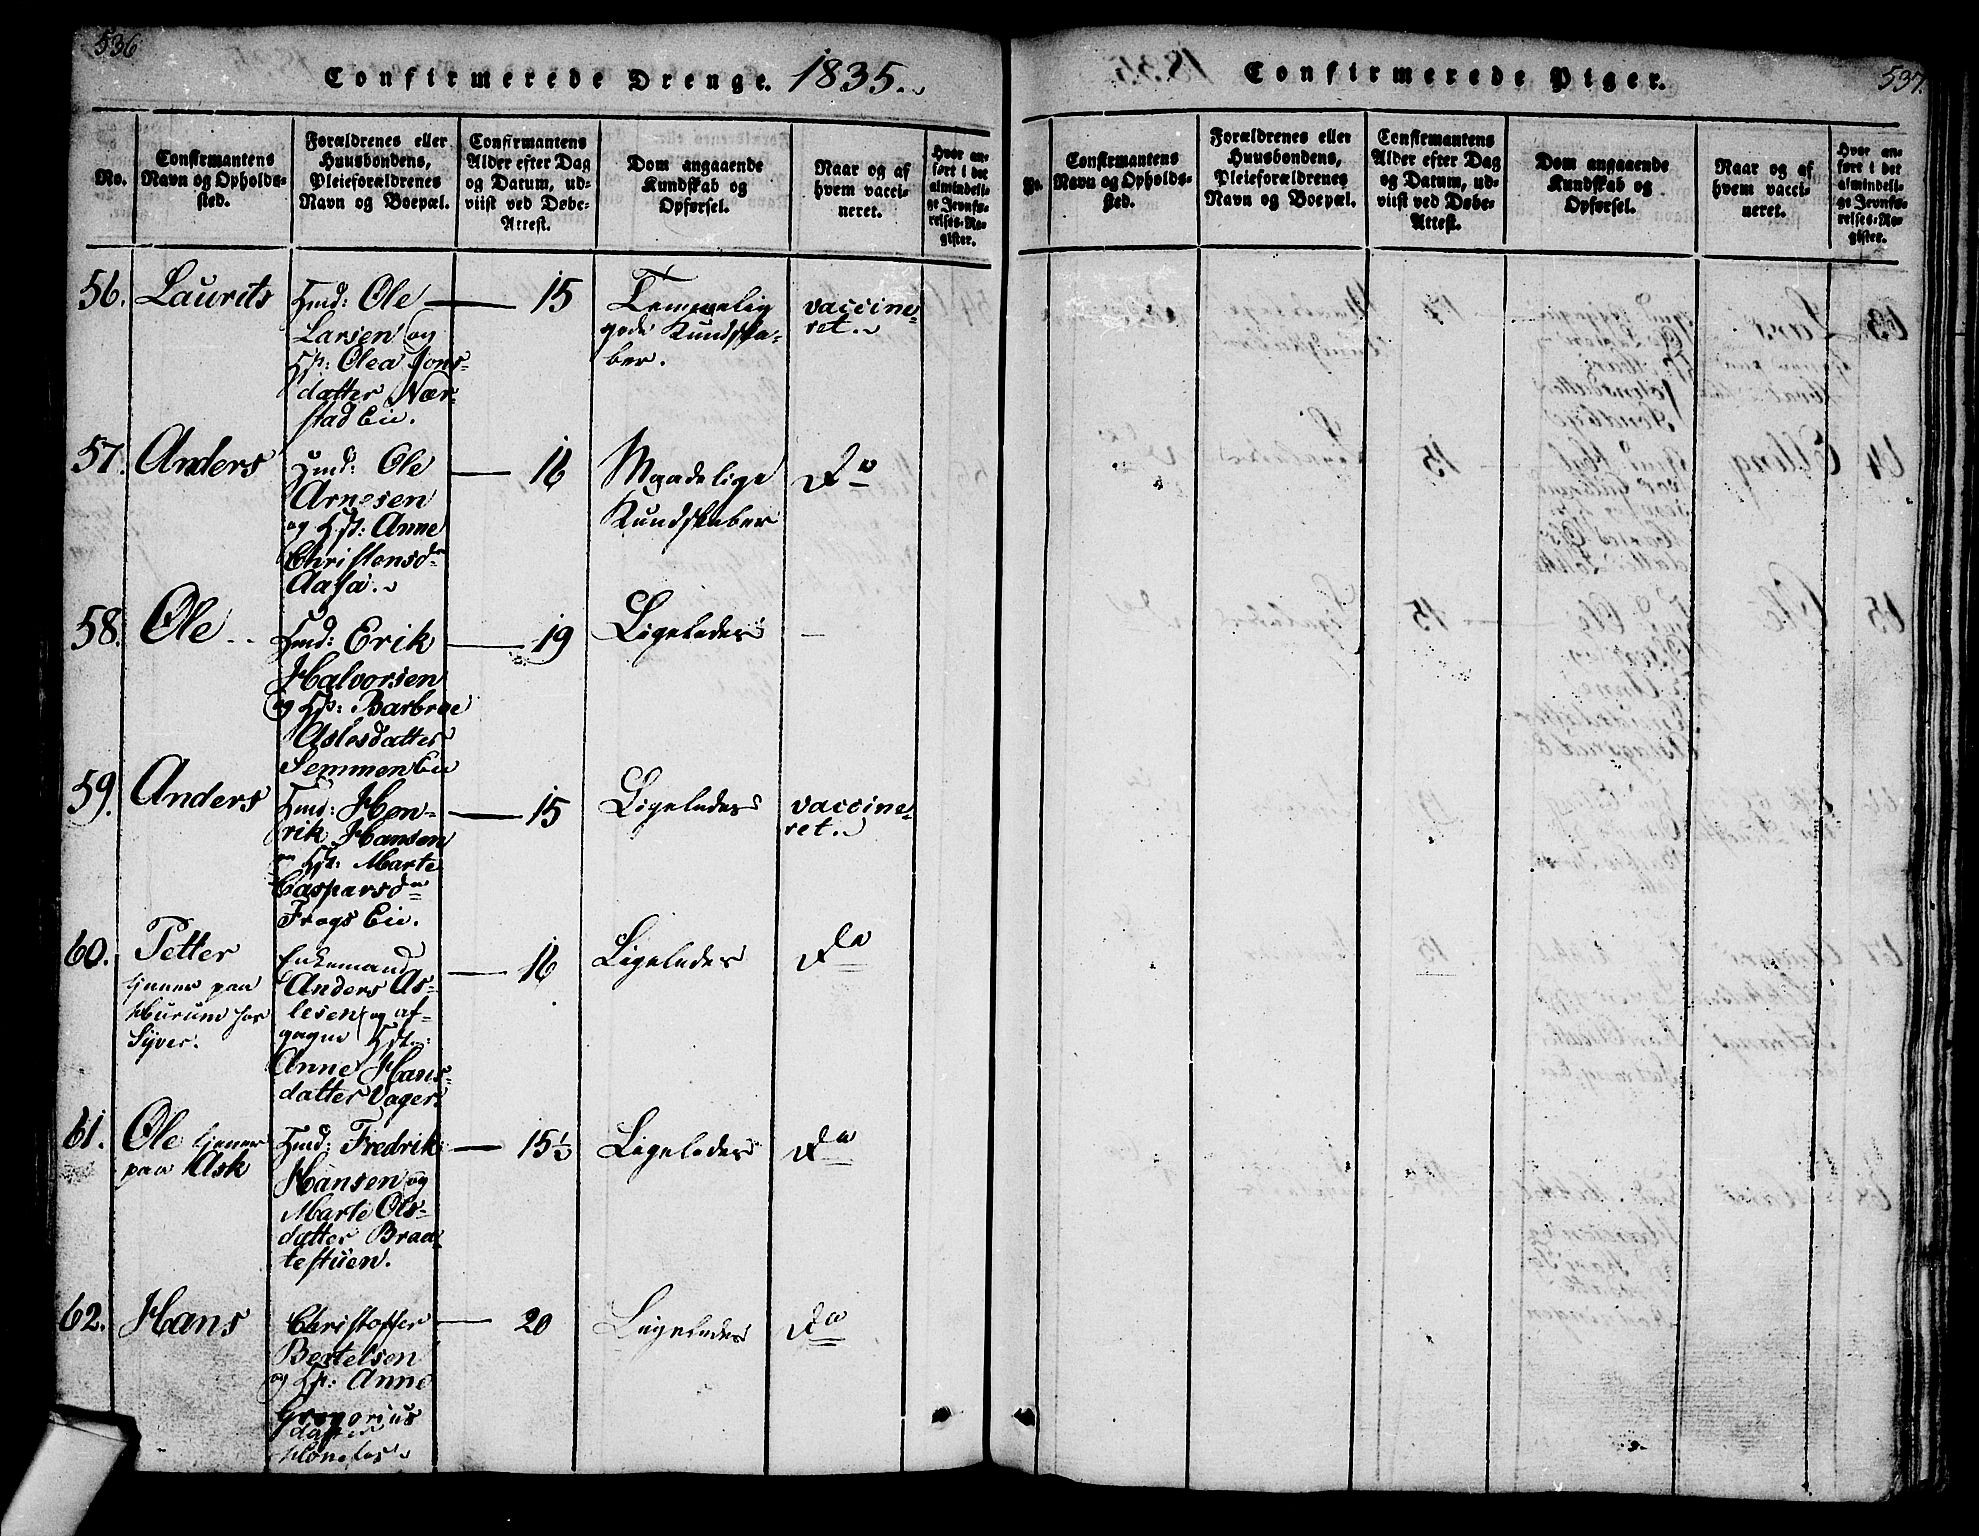 536
Confirmerede Drenge. 1835.
No.
Confirmantens
Navn og Opholds-
sted.
Forældrenes eller
Huusbondens,
Pleieforældrenes
Navn og Boepæl.
Confirmantens
Alder efter Dag
og Datum, ud-
viist ved Døbe-
Attest.
Dom angaaende
Kundskab og
Opførsel.
Naar og af
hvem vacci-
neret.
Hvor an-
ført i det
almindeli-
ge Jevnfø-
relses-Re-
gister.
56. Laurits
Hmd: Ole
Larsen og
Hst: Olea Jons-
datter Nær-
stad Eie.
15
Temmelig
gode Kundska-
ber.
vaccine-
ret.
57. Anders
Hmd: Ole
Arnesen
og Hst: Anne
Christensdr
Aasa.
16
Maadelige
Kundskaber
Do
58. Ole
Hmd: Erik
Halvorsen
og Hst: Barbroe
Aslesdatter
Semmen Eie
19
Ligeledes
—
59. Anders
Hmd: Hen-
rik Hansen
og Hst: Marte
Caspersdr
Frogs Eie.
15
Ligeledes
vaccine-
ret.
60. Petter
tjener paa
Hurum hos
Syver.
Enkemand
Anders As-
lesen og af-
gagne Hst:
Anne Hans-
datter Vager
16
Ligeledes
Do
61. Ole tjener
paa Ask
Hmd: Fredrik
Hansen og
Marte Ols-
datter Braa-
testuen.
15½
Ligeledes
Do
62. Hans
Christoffer
Bertelsen
og Hst: Anne
Gregorius
datter
20
Ligeledes
Do
537.
Confirmerede Piger.
No.
Confirmantens
Navn og Opholds-
sted.
Forældrenes eller
Huusbondens,
Pleieforældrenes
Navn og Boepæl.
Confirmantens
Alder efter Dag
og Datum, ud-
viist ved Døbe-
Attest.
Dom angaaende
Kundskab og
Opførsel.
Naar og af
hvem vacci-
neret.
Hvor an-
ført i det
almindeli-
ge Jevnfø-
relses-Re-
gister.